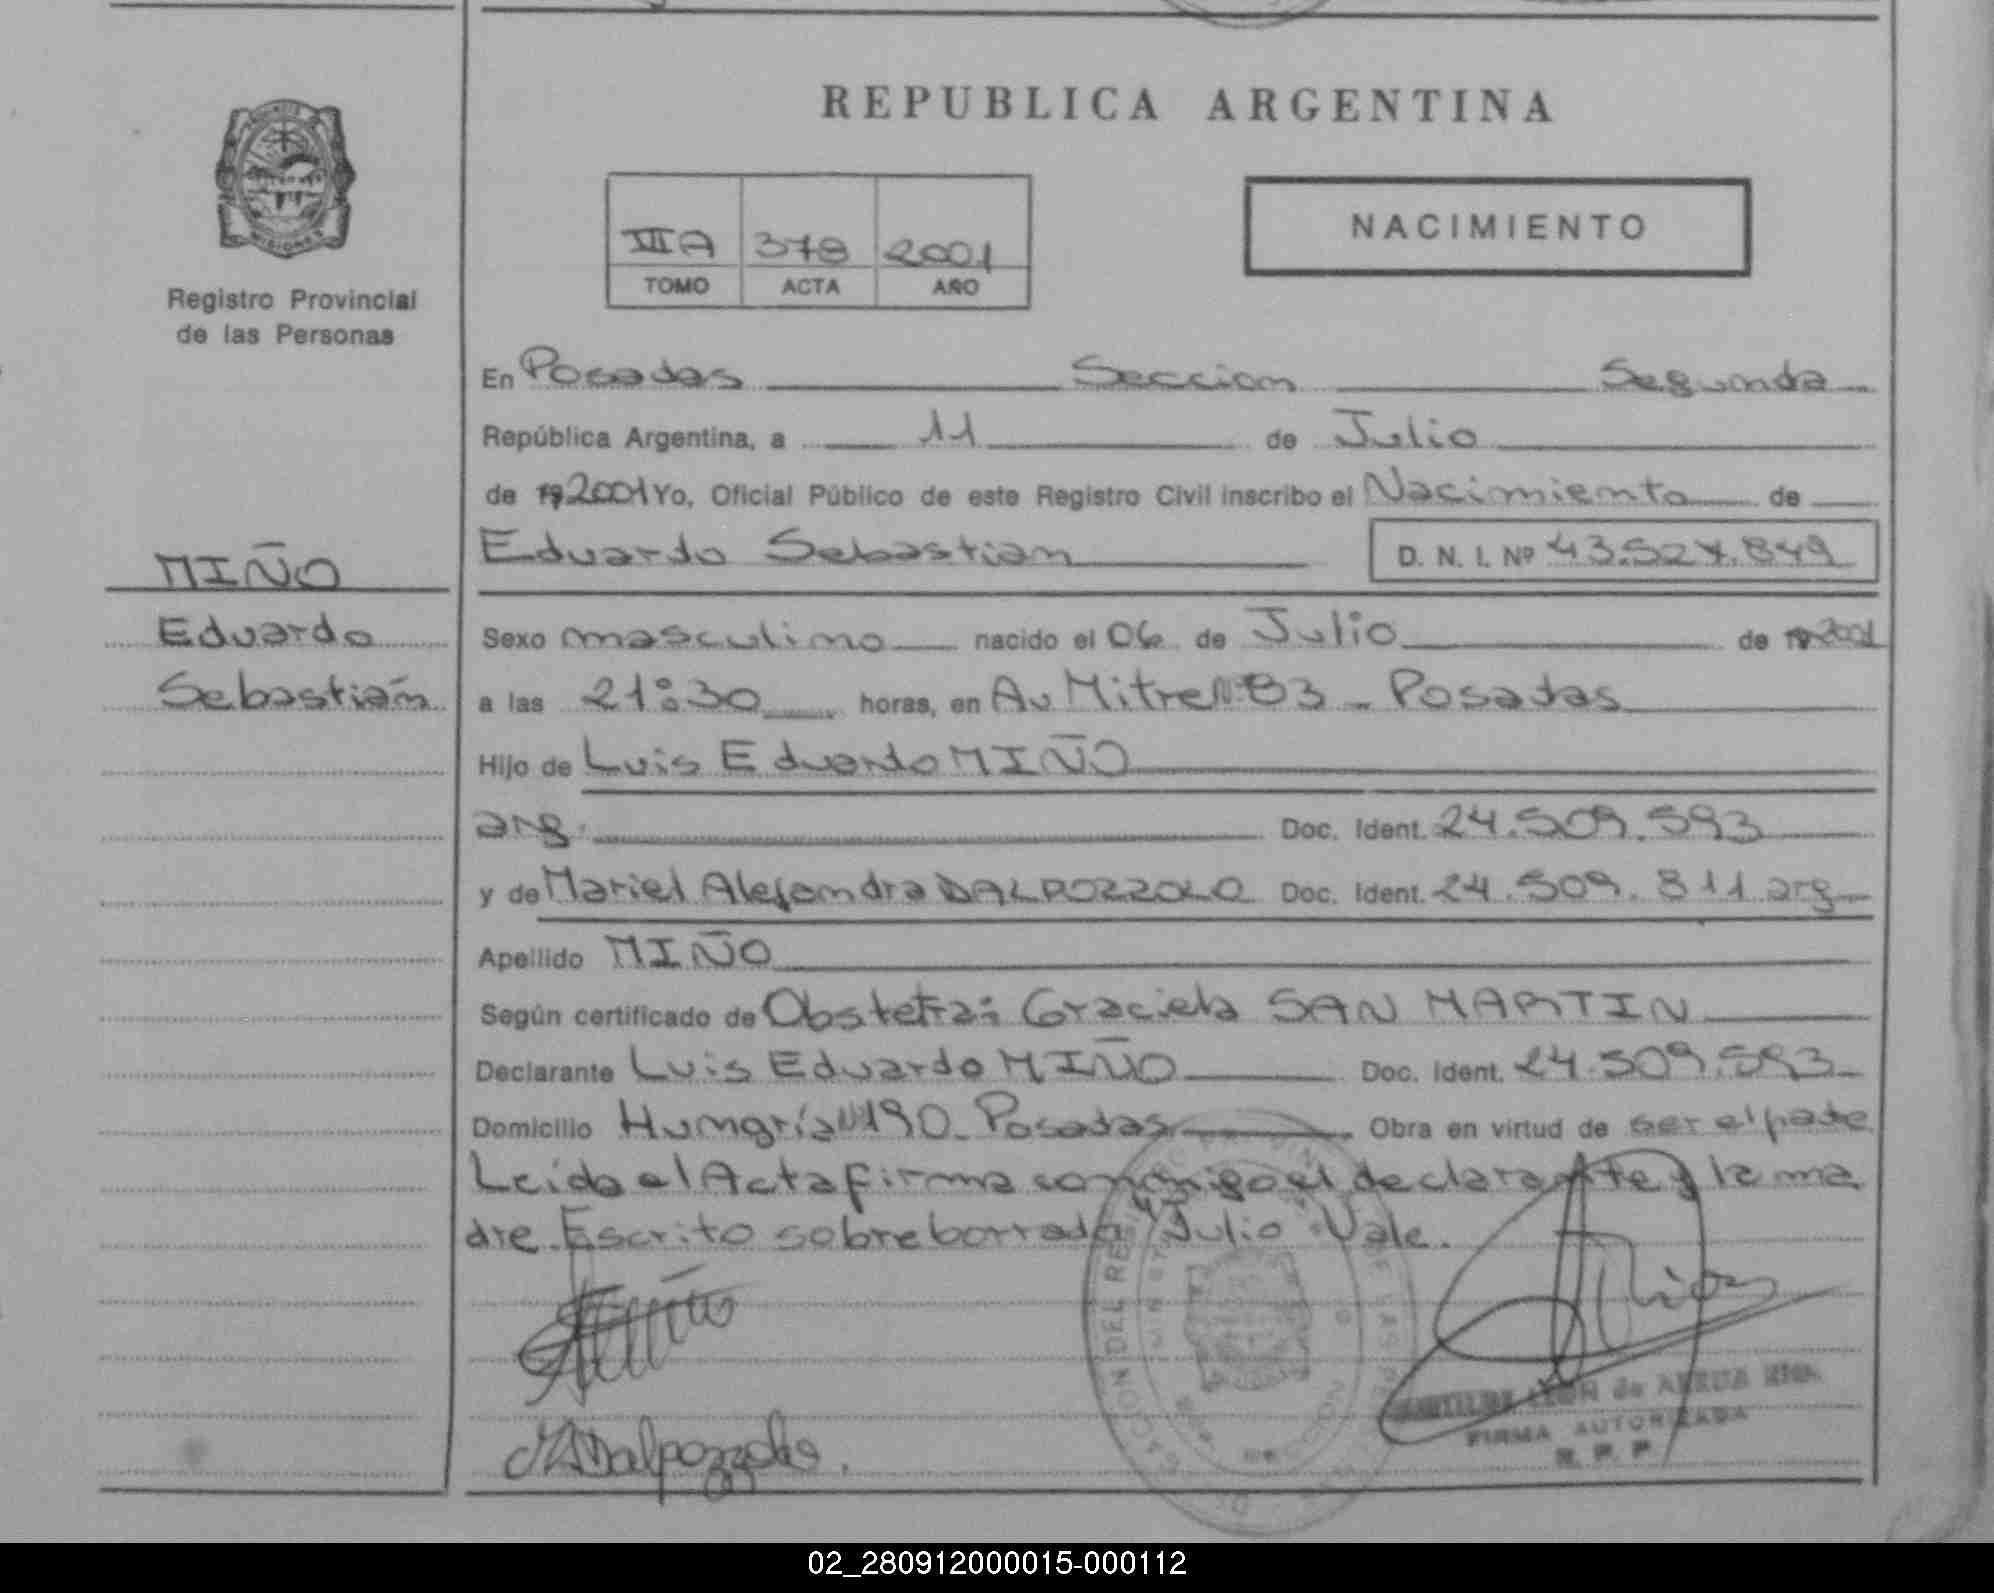 REPUBLICA ARGENTINA
NACIMIENTO
IIIA 378 2001
TOMO ACTA AÑO
MISIONES
Registro Provincial
de las Personas
MIÑO
Eduardo
Sebastián
En Posadas Seccion Segunda
República Argentina, a 11 de Julio
de 19 2001 Yo, Oficial Público de este Registro Civil inscribo el Nacimiento de
Eduardo Sebastián D. N. I. Nº 43.527.849
Sexo masculino nacido el 06 de Julio de 19 2001
a las 21:30 horas, en Av Mitre Nº 83 - Posadas
Hijo de Luis Eduardo MIÑO
arg. Doc. Ident. 24.509.593
y de Mariel Alejandra DALPOZZOLO Doc. Ident. 24.509.811 arg
Apellido MIÑO
Según certificado de Obstetra: Graciela SAN MARTIN
Declarante Luis Eduardo MIÑO Doc. Ident. 24.509.593
Domicilio Hungría Nº 190 - Posadas Obra en virtud de ser el padre
Leída el Acta firma conmigo el declarante y la ma
dre. Escrito sobreborrado "Julio" Vale.
Miño
MADalpozzolo.
DELEGACION DEL REGISTRO PROVINCIAL DE LAS PERSONAS
LEON de
FIRMA AUTORIZADA
R. P. P.
02_280912000015-000112